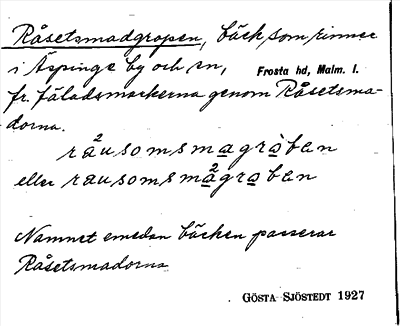 Råsetsmadgropen, bäck, som rinner
i Äspinge by och sn, Frosta hd, Malm. l.
fr. fäladsmarkerna genom Råsetsma-
dorna.
räusomsmagroben
eller räusomsmagroben
Namnet emedan bäcken passerar
Råsetsmadorna
GÖSTA SJÖSTEDT 1927